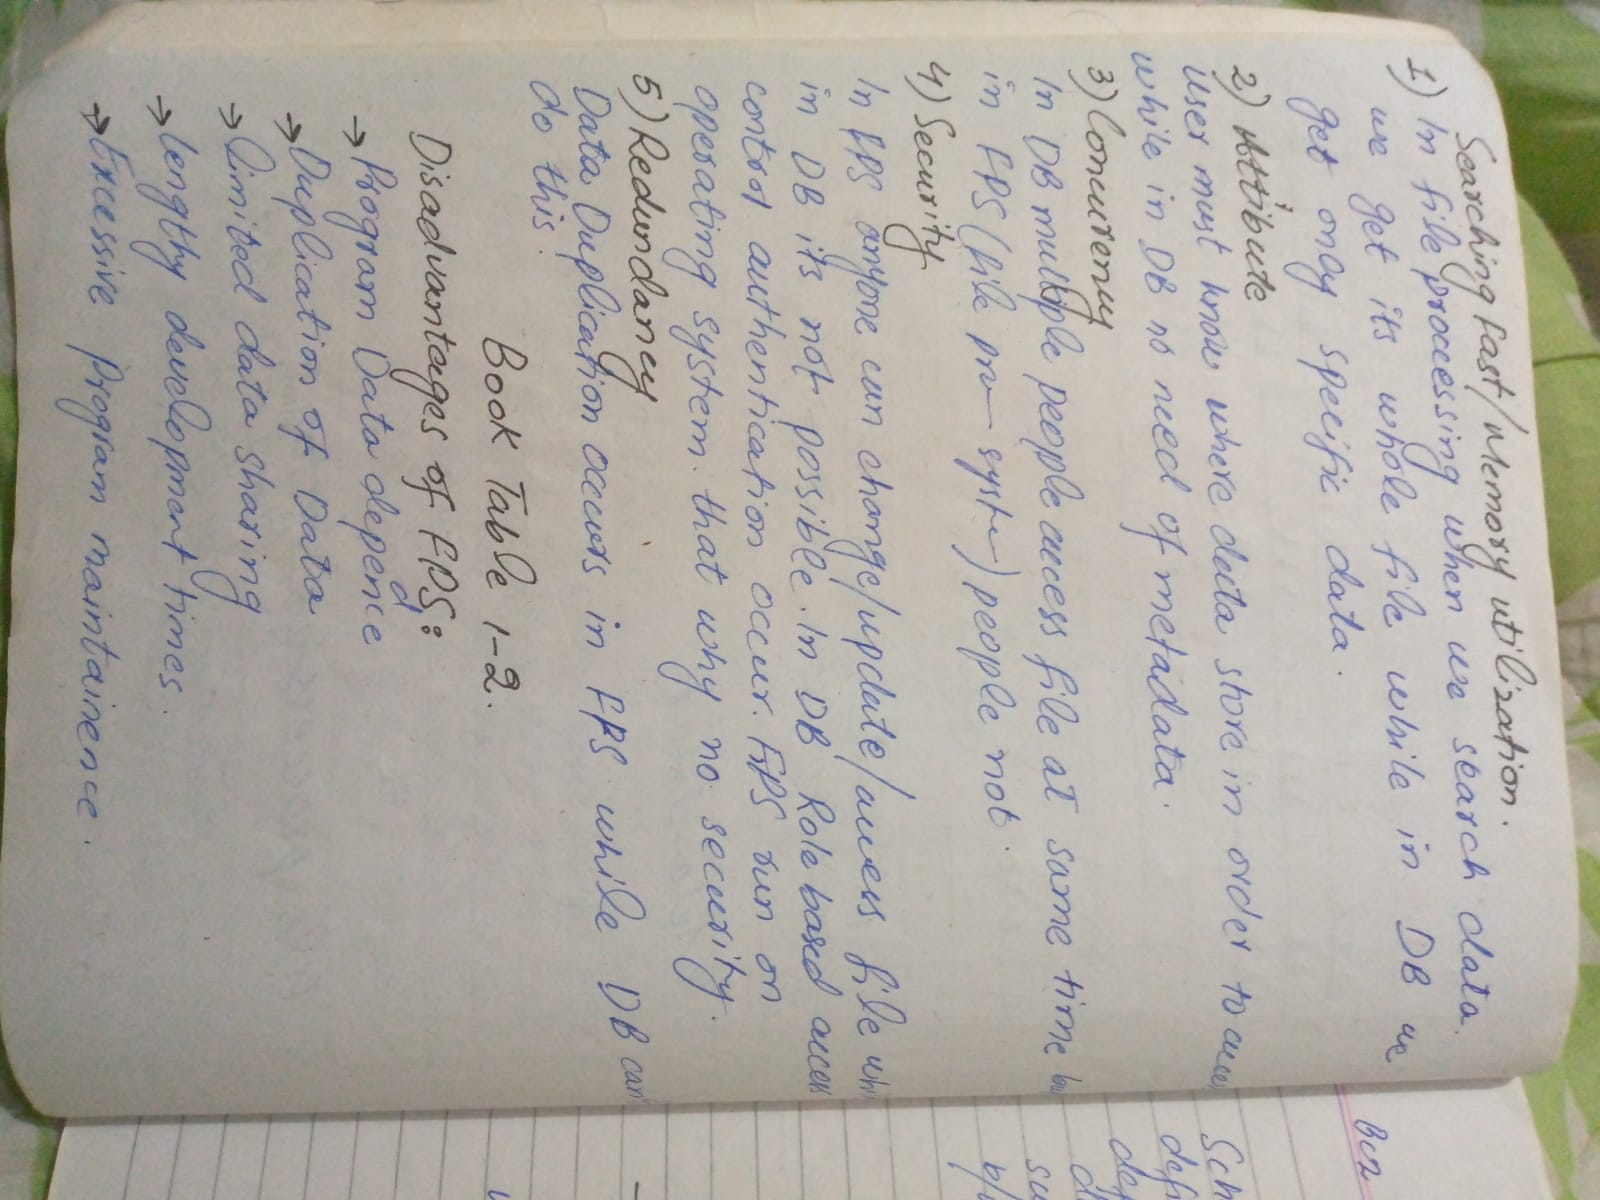 Searching fast/Memory utilization.
1) In file processing when we search data.
we get its whole file while in DB we
get only specific data.
2) Attibute
User must know where data store in order to
while in DB no need of metadata.
3) Concurency
In DB multiple people access file at same time
in FPS (file system) people not.
4) Security
In FPS anyone can change/update/access file
in DB its not possible. In DB Role based access
control authentication occur. FPS run on
operating system. that why no security.
5) Redundancy
Data Duplication occurs in FPS while DB can
do this.
Book Table 1-2.
Disadvantages of FPS:
→ Program Data depence
→ Duplication of Data
→ limited data sharing
→ lengthy development times.
→ Excessive Program maintainence.
Bcz
Sch